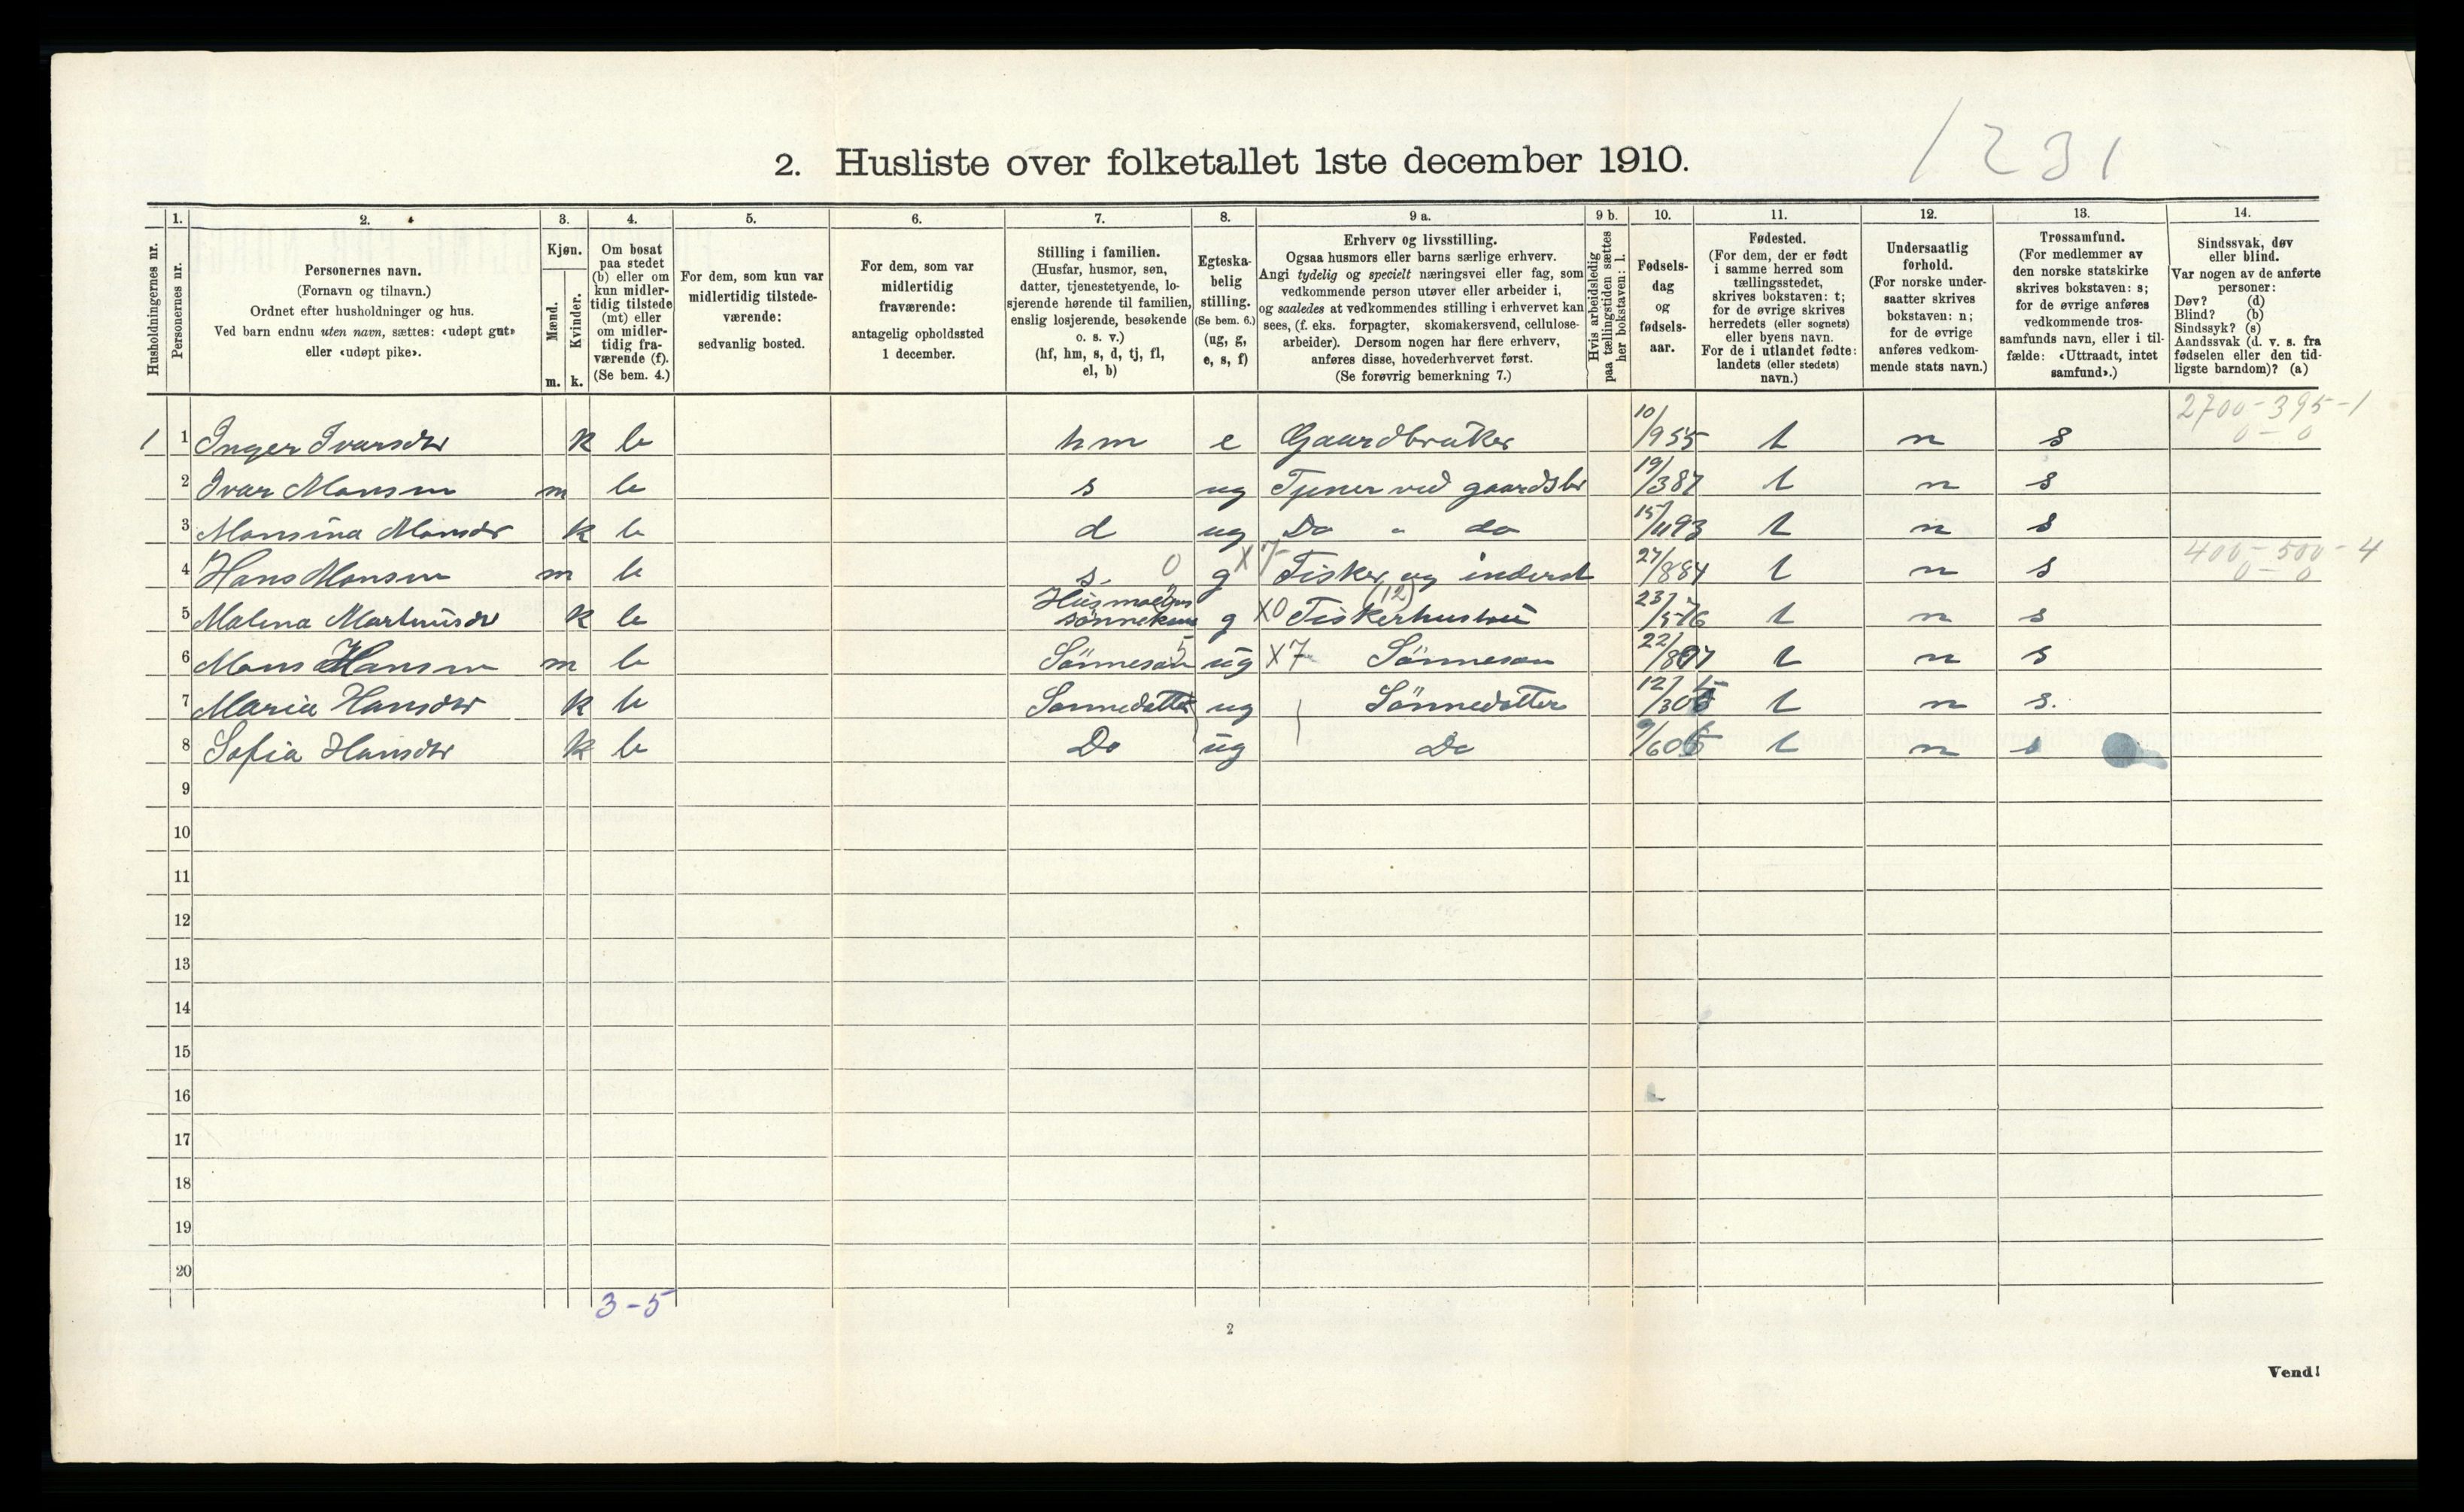 1231
2. Husliste over folketallet 1ste december 1910.
Husholdningernes nr.
1. Personernes nr.
2. Personernes navn.
(Fornavn og tilnavn.)
Ordnet efter husholdninger og hus.
Ved barn endnu uten navn, sættes: «udøpt gut»
eller «udøpt pike».
3. Kjøn.
Mænd. m.
Kvinder. k.
4. Om bosat
paa stedet
(b) eller om
kun midler-
tidig tilstede
(mt) eller
om midler-
tidig fra-
værende (f).
(Se bem. 4.)
5. For dem, som kun var
midlertidig tilstede-
værende:
sedvanlig bosted.
6. For dem, som var
midlertidig
fraværende:
antagelig opholdssted
1 december.
7. Stilling i familien.
(Husfar, husmor, søn,
datter, tjenestetyende, lo-
sjerende hørende til familien,
enslig losjerende, besøkende
o. s. v.)
(hf, hm, s, d, tj, fl,
el, b)
8. Egteska-
belig
stilling.
(Se bem. 6.)
(ug, g,
e, s, f)
9 a. Erhverv og livsstilling.
Ogsaa husmors eller barns særlige erhverv.
Angi tydelig og specielt næringsvei eller fag, som
vedkommende person utøver eller arbeider i,
og saaledes at vedkommendes stilling i erhvervet kan
sees, (f. eks. forpagter, skomakersvend, cellulose-
arbeider). Dersom nogen har flere erhverv,
anføres disse, hovederhvervet først.
(Se forøvrig bemerkning 7.)
9 b. Hvis arbeidsledig
paa tællingstiden sættes
her bokstaven: l.
10. Fødsels-
dag
og
fødsels-
aar.
11. Fødested.
(For dem, der er født
i samme herred som
tællingsstedet,
skrives bokstaven: t;
for de øvrige skrives
herredets (eller sognets)
eller byens navn.
For de i utlandet fødte:
landets (eller stedets)
navn.)
12. Undersaatlig
forhold.
(For norske under-
saatter skrives
bokstaven: n;
for de øvrige
anføres vedkom-
mende stats navn.)
13. Trossamfund.
(For medlemmer av
den norske statskirke
skrives bokstaven: s;
for de øvrige anføres
vedkommende tros-
samfunds navn, eller i til-
fælde: «Uttraadt, intet
samfund».)
14. Sindssvak, døv
eller blind.
Var nogen av de anførte
personer:
Døv? (d)
Blind? (b)
Sindssyk? (s)
Aandssvak (d. v. s. fra
fødselen eller den tid-
ligste barndom)? (a)
2700-395-1
0-0
1 1 Inger Ivarsdtr k b hm e Gaardbruker 10/9 55 t n s
2 Ivar Monsen m b s ug Tjener ved gaardsbr 19/3 87 t n s
3 Monsina Monsdtr k b d ug Do " do 15/11 93 t n s
400-500-4
0-0
4 Hans Monsen m b s. 0 g X7 Fisker og inderst 27/8 84 t n s
(12)
5 Malena Martinusdtr k b Husmoders
sønnekone g X0 Fiskerhustru 23/5 76 t n s
6 Mons Hansen m b Sönnesön 5 ug X7 Sönneson 22/8 07 t n s
7 Maria Hansdtr k b Sonnedatter ug Sönnedotter 12/3 05 t n s.
8 Sofia Hansdtr k b Do ug Do 9/6 06 t n s
9
10
11
12
13
14
15
16
17
18
19
20
3-5
2
Vend!